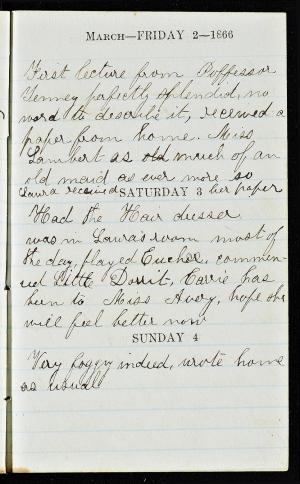 MARCH—FRIDAY 2—1866
First lecture from Poffessor
Tenney perfectly splendid, no
word to describe it, received a
paper from home. Miss
Lambert as old much of an
old maid as ever more so
Laura received her paper
SATURDAY 3
Had the Hair dresser
was in Laura's room most of
the day, played Euchre, commen-
ced Little Dorrit, Carrie has
been to Miss Avery, hope she
will feel better now
SUNDAY 4
Very foggy indeed, wrote home
as usual